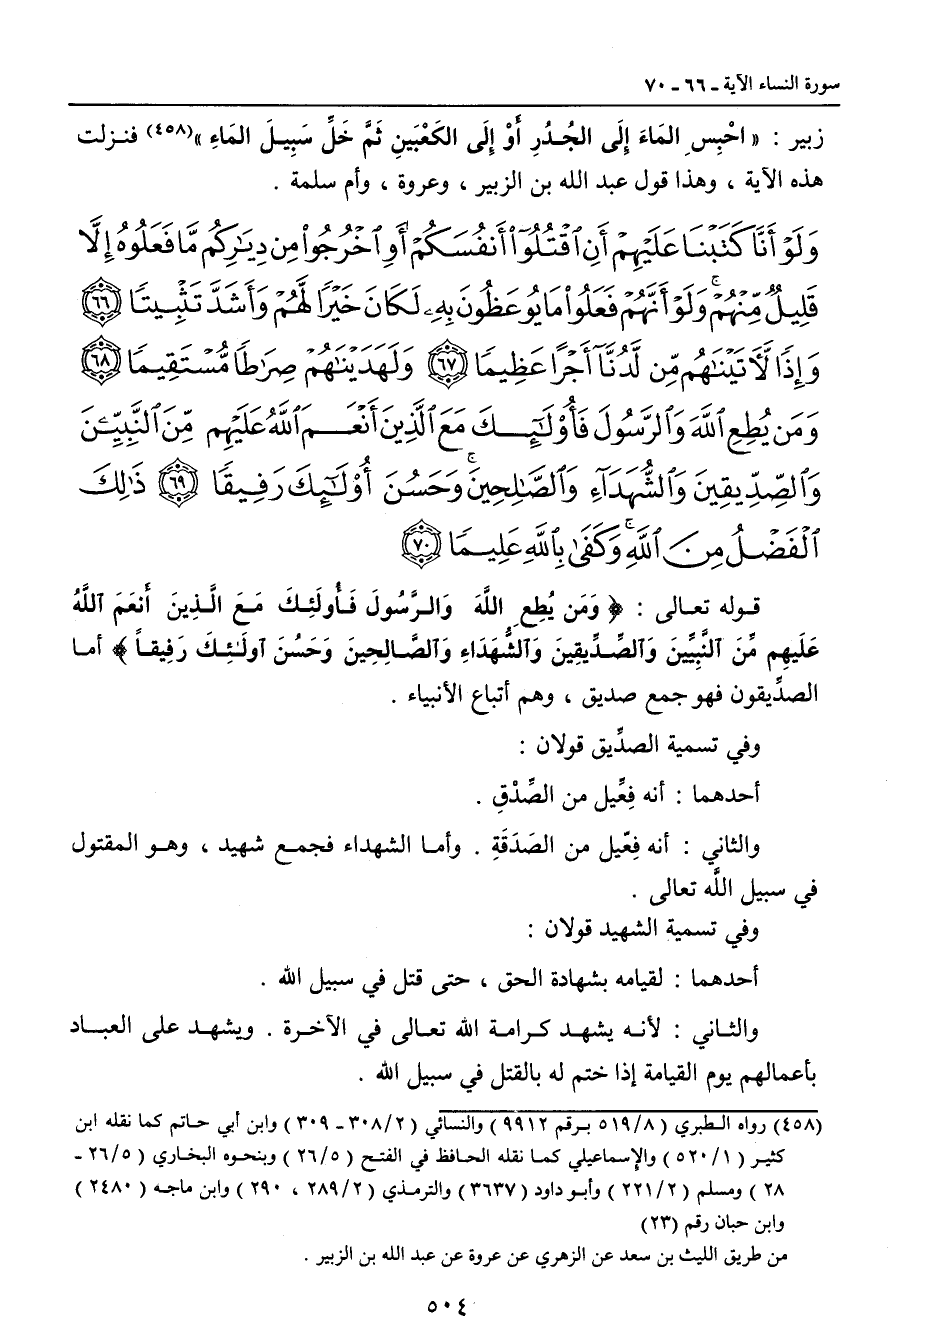 سورة النساء الآية ـ ٦٦ ـ ٧٠
زبير : « احْبِسِ المَاءَ إِلَى الجُدُرِ أَوْ إِلَى الكَعْبَينِ ثَمَّ خَلِّ سَبِيلَ المَاءِ »(٤٥٨) فنزلت
هذه الآية ، وهذا قول عبد الله بن الزبير ، وعروة ، وأم سلمة .
وَلَوْ أَنَّا كَتَبْنَا عَلَيْهِمْ أَنِ ٱقْتُلُوٓا۟ أَنفُسَكُمْ أَوِ ٱخْرُجُوا۟ مِن دِيَـٰرِكُم مَّا فَعَلُوهُ إِلَّا
قَلِيلٌ مِّنْهُمْ ۖ وَلَوْ أَنَّهُمْ فَعَلُوا۟ مَا يُوعَظُونَ بِهِۦ لَكَانَ خَيْرًا لَّهُمْ وَأَشَدَّ تَثْبِيتًا ٦٦
وَإِذًا لَّـَٔاتَيْنَـٰهُم مِّن لَّدُنَّآ أَجْرًا عَظِيمًا ٦٧ وَلَهَدَيْنَـٰهُمْ صِرَٰطًا مُّسْتَقِيمًا ٦٨
وَمَن يُطِعِ ٱللَّهَ وَٱلرَّسُولَ فَأُو۟لَـٰٓئِكَ مَعَ ٱلَّذِينَ أَنْعَمَ ٱللَّهُ عَلَيْهِم مِّنَ ٱلنَّبِيِّـۧنَ
وَٱلصِّدِّيقِينَ وَٱلشُّهَدَآءِ وَٱلصَّـٰلِحِينَ ۚ وَحَسُنَ أُو۟لَـٰٓئِكَ رَفِيقًا ٦٩ ذَٰلِكَ
ٱلْفَضْلُ مِنَ ٱللَّهِ ۚ وَكَفَىٰ بِٱللَّهِ عَلِيمًا ٧٠
قوله تعالى : ﴿ وَمَن يُطِعِ اللَّهَ وَالرَّسُولَ فَأُولَئِكَ مَعَ الَّذِينَ أَنعَمَ اللَّهُ
عَلَيهِم مِّنَ النَّبِيِّينَ وَالصِّدِّيقِينَ وَالشُّهَدَاءِ وَالصَّالِحِينَ وَحَسُنَ أولَئِكَ رَفِيقاً ﴾ أما
الصدِّيقون فهو جمع صديق ، وهم أتباع الأنبياء .
وفي تسمية الصدِّيق قولان :
أحدهما : أنه فِعِّيل من الصِّدْقِ .
والثاني : أنه فِعّيل من الصَدَقَةِ . وأما الشهداء فجمع شهيد ، وهو المقتول
في سبيل اللَّه تعالى .
وفي تسمية الشهيد قولان :
أحدهما : لقيامه بشهادة الحق ، حتى قتل في سبيل الله .
والثاني : لأنه يشهد كرامة الله تعالى في الآخرة . ويشهد على العباد
بأعمالهم يوم القيامة إذا ختم له بالقتل في سبيل الله .
(٤٥٨) رواه الطبري ( ٥١٩/٨ برقم ٩٩١٢ ) والنسائي ( ٣٠٨/٢ ـ ٣٠٩ ) وابن أبي حاتم كما نقله ابن
كثير ( ٥٢٠/١ ) والإسماعيلي كما نقله الحافظ في الفتح ( ٢٦/٥ ) وبنحوه البخاري ( ٢٦/٥ ـ
٢٨ ) ومسلم ( ٢٢١/٢ ) وأبو داود ( ٣٦٣٧ ) والترمذي ( ٢٨٩/٢ ، ٢٩٠ ) وابن ماجه ( ٢٤٨٠ )
وابن حبان رقم (٢٣)
من طريق الليث بن سعد عن الزهري عن عروة عن عبد الله بن الزبير .
٥٠٤